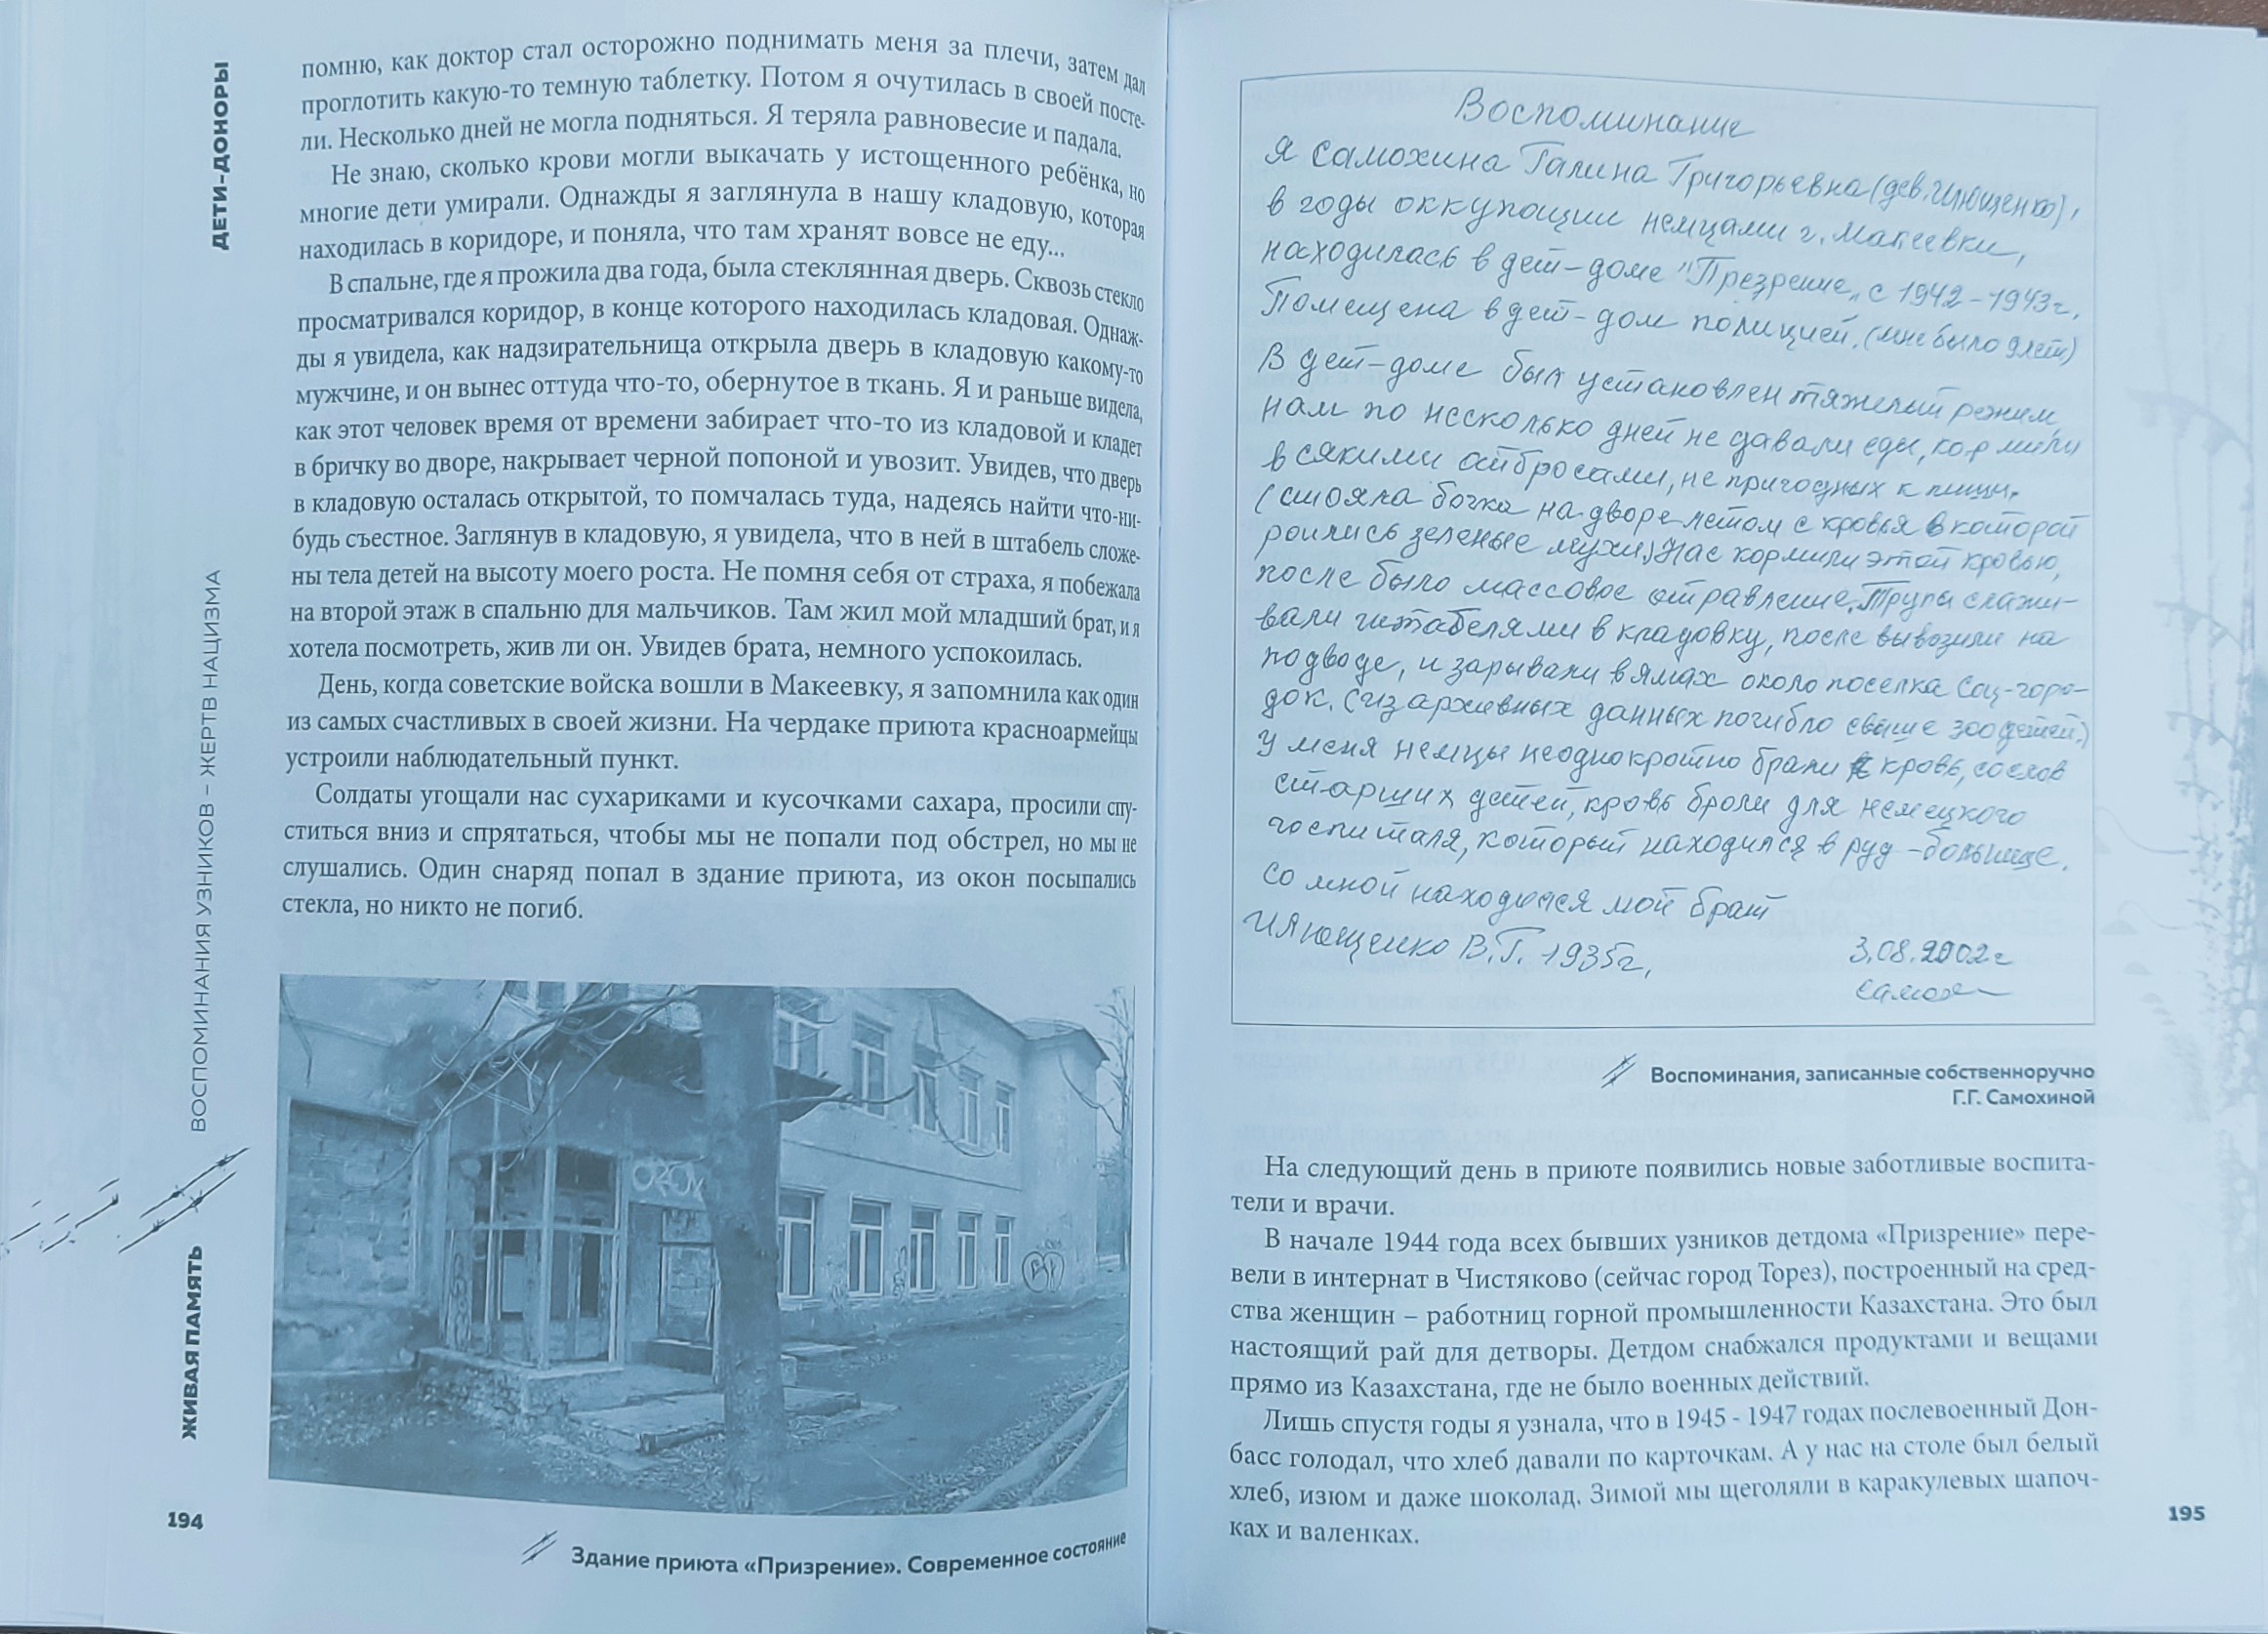 ДЕТИ-ДОНОРЫ
ВОСПОМИНАНИЯ УЗНИКОВ – ЖЕРТВ НАЦИЗМА
ЖИВАЯ ПАМЯТЬ
помню, как доктор стал осторожно поднимать меня за плечи, затем дал
проглотить какую-то темную таблетку. Потом я очутилась в своей посте-
ли. Несколько дней не могла подняться. Я теряла равновесие и падала.
Не знаю, сколько крови могли выкачать у истощенного ребёнка, но
многие дети умирали. Однажды я заглянула в нашу кладовую, которая
находилась в коридоре, и поняла, что там хранят вовсе не еду...
В спальне, где я прожила два года, была стеклянная дверь. Сквозь стекло
просматривался коридор, в конце которого находилась кладовая. Однаж-
ды я увидела, как надзирательница открыла дверь в кладовую какому-то
мужчине, и он вынес оттуда что-то, обернутое в ткань. Я и раньше видела,
как этот человек время от времени забирает что-то из кладовой и кладет
в бричку во дворе, накрывает черной попоной и увозит. Увидев, что дверь
в кладовую осталась открытой, то помчалась туда, надеясь найти что-ни-
будь съестное. Заглянув в кладовую, я увидела, что в ней в штабель сложе-
ны тела детей на высоту моего роста. Не помня себя от страха, я побежала
на второй этаж в спальню для мальчиков. Там жил мой младший брат, и я
хотела посмотреть, жив ли он. Увидев брата, немного успокоилась.
День, когда советские войска вошли в Макеевку, я запомнила как один
из самых счастливых в своей жизни. На чердаке приюта красноармейцы
устроили наблюдательный пункт.
Солдаты угощали нас сухариками и кусочками сахара, просили спу-
ститься вниз и спрятаться, чтобы мы не попали под обстрел, но мы не
слушались. Один снаряд попал в здание приюта, из окон посыпались
стекла, но никто не погиб.
Здание приюта «Призрение». Современное состояние
194
Воспоминание
Я Самохина Галина Григорьевна (дев. Илющенко),
в годы оккупации немцами г. Макеевки,
находилась в дет-доме "Презрение" с 1942-1943г.
Помещена в дет-дом полицией. (мне было 9 лет)
В дет-доме был установлен тяжелый режим,
нам по несколько дней не давали еды, кормили
всякими отбросами, не пригодных к пищи.
(стояла бочка на дворе летом с кровья в которой
роились зеленые мухи) Нас кормили этой кровью,
после было массовое отравление. Трупы слажи-
вали штабелями в кладовку, после вывозили на
подводе, и зарывали в ямах около поселка Соц-горо-
док. (из архивных данных погибло свыше 300 детей.)
У меня немцы неоднократно брали кровь, со слов
старших детей, кровь броли для немецкого
госпиталя, который находился в руд-больнице.
Со мной находился мой брат
Илющенко В.Г. 1935г.
3.08.2002г
Самох
Воспоминания, записанные собственноручно
Г.Г. Самохиной
На следующий день в приюте появились новые заботливые воспита-
тели и врачи.
В начале 1944 года всех бывших узников детдома «Призрение» пере-
вели в интернат в Чистяково (сейчас город Торез), построенный на сред-
ства женщин – работниц горной промышленности Казахстана. Это был
настоящий рай для детворы. Детдом снабжался продуктами и вещами
прямо из Казахстана, где не было военных действий.
Лишь спустя годы я узнала, что в 1945 - 1947 годах послевоенный Дон-
басс голодал, что хлеб давали по карточкам. А у нас на столе был белый
хлеб, изюм и даже шоколад. Зимой мы щеголяли в каракулевых шапоч-
ках и валенках.
195